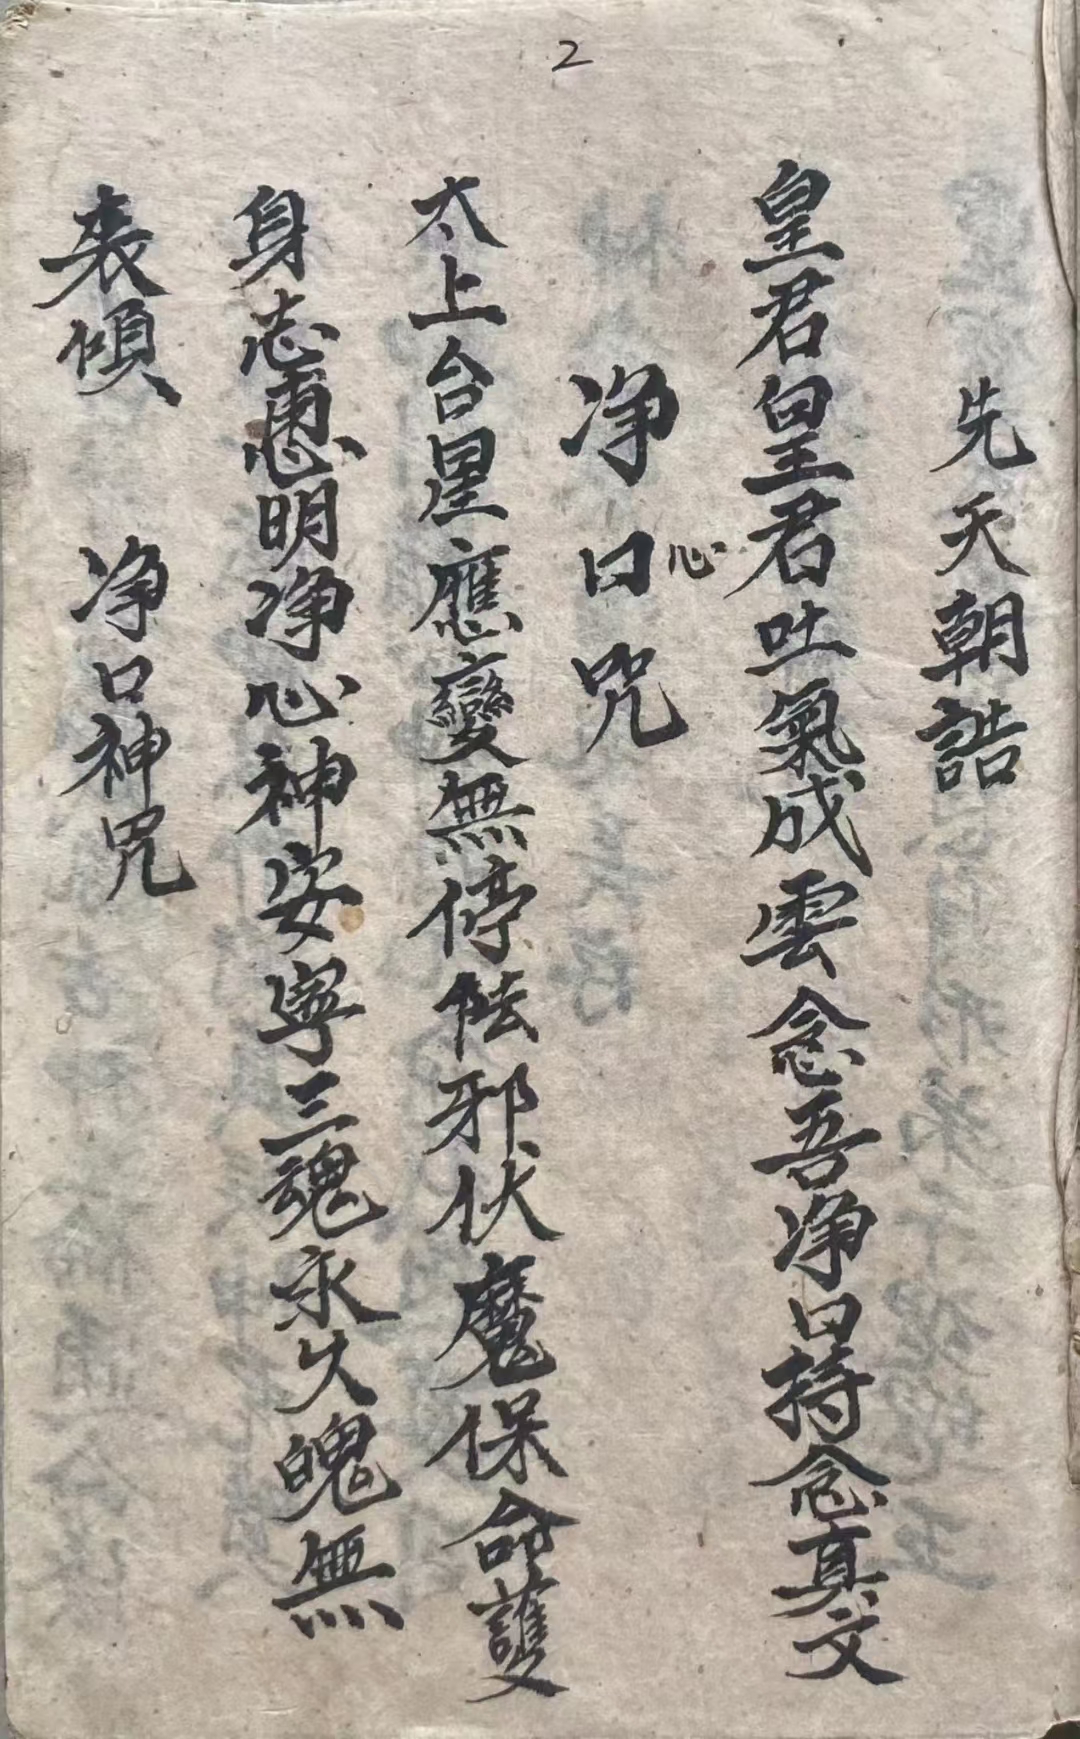 2
先天朝誥
皇君皇君吐氣成雲念吾净口持念真文
净口心咒
太上台星應變無停陆邪伏魔保命護
身志惠明净心神安寧三魂永久魄無
表傾 净口神咒